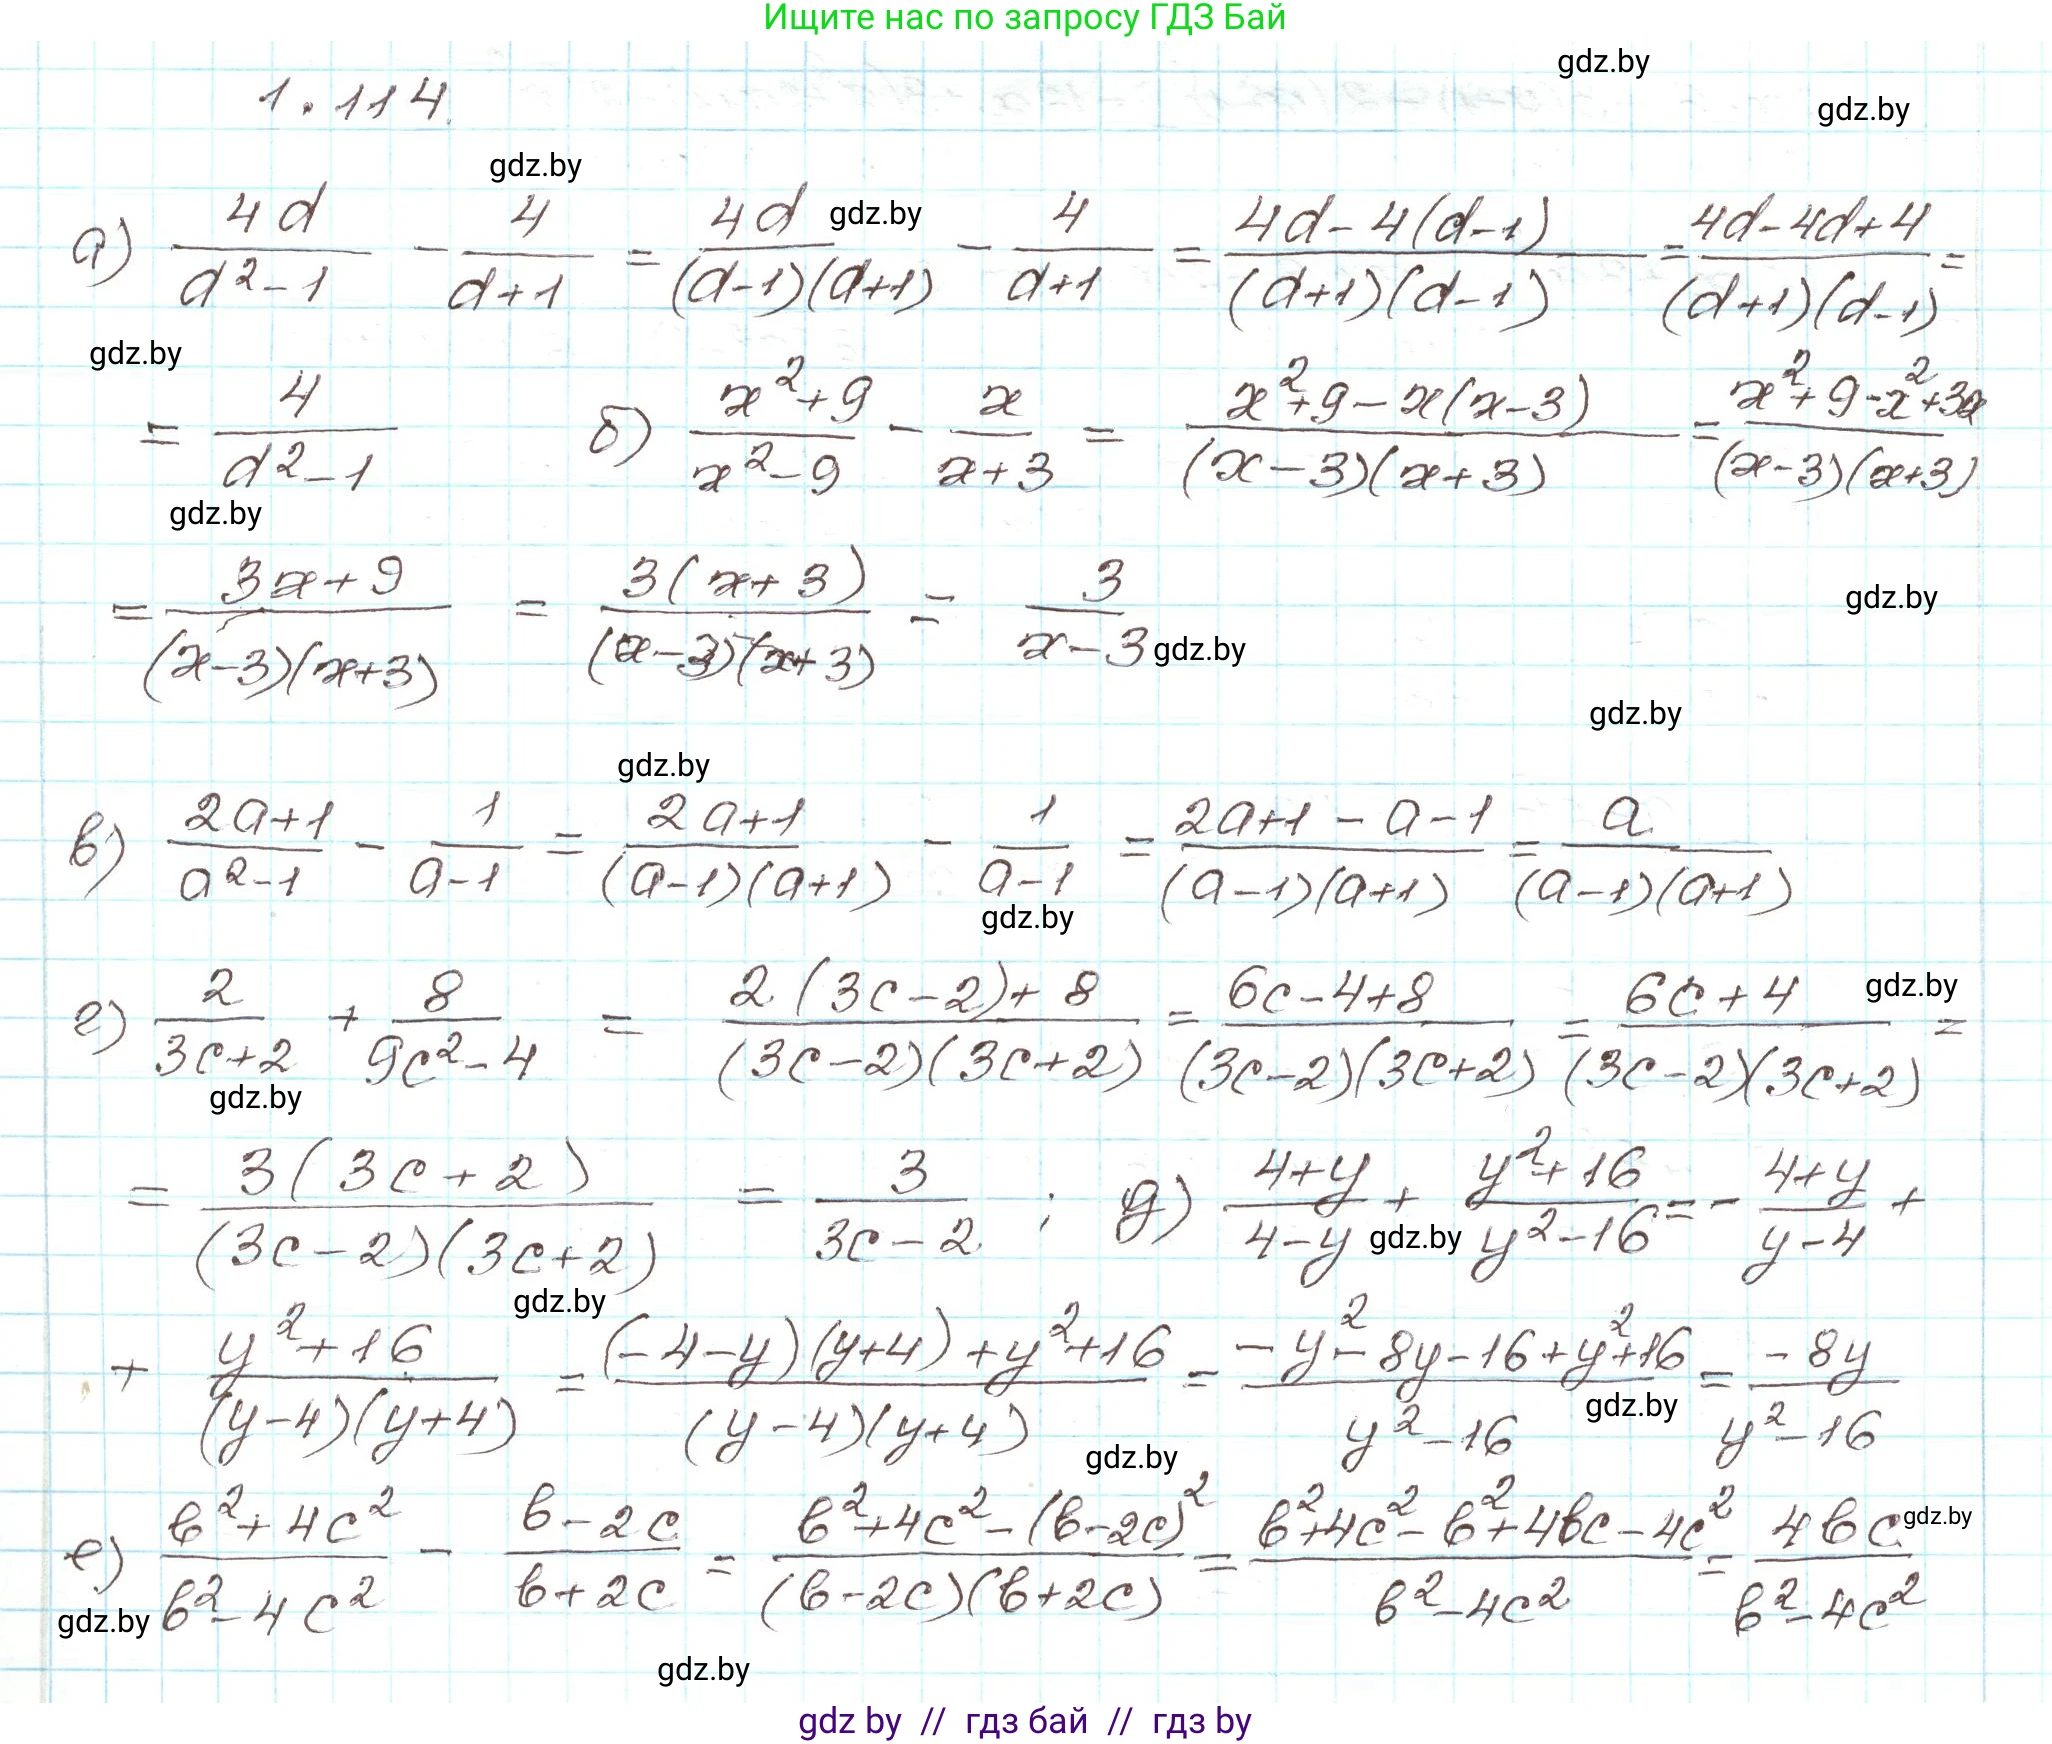 Ищите нас по запросу ГДЗ Бай
gdz.by
1.114.
gdz.by
gdz.by
а) 4d/(d²-1) - 4/(d+1) = 4d/((d-1)(d+1)) - 4/(d+1) = (4d-4(d-1))/((d+1)(d-1)) = (4d-4d+4)/((d+1)(d-1)) =
gdz.by
gdz.by
= 4/(d²-1) б) (x²+9)/(x²-9) - x/(x+3) = (x²+9-x(x-3))/((x-3)(x+3)) = (x²+9-x²+3x)/((x-3)(x+3))
gdz.by
= (3x+9)/((x-3)(x+3)) = 3(x+3)/((x-3)(x+3)) = 3/(x-3)
gdz.by
gdz.by
gdz.by
gdz.by
в) (2a+1)/(a²-1) - 1/(a-1) = (2a+1)/((a-1)(a+1)) - 1/(a-1) = (2a+1-a-1)/((a-1)(a+1)) = a/((a-1)(a+1))
gdz.by
г) 2/(3c+2) + 8/(9c²-4) = (2(3c-2)+8)/((3c-2)(3c+2)) = (6c-4+8)/((3c-2)(3c+2)) = (6c+4)/((3c-2)(3c+2)) =
gdz.by
gdz.by
= 3(3c+2)/((3c-2)(3c+2)) = 3/(3c-2); д) (4+y)/(4-y) + (y²+16)/(y²-16) = - (4+y)/(y-4) +
gdz.by
gdz.by
+ (y²+16)/((y-4)(y+4)) = ((-4-y)(y+4)+y²+16)/((y-4)(y+4)) = (-y²-8y-16+y²+16)/(y²-16) = -8y/(y²-16)
gdz.by
gdz.by
е) (b²+4c²)/(b²-4c²) - (b-2c)/(b+2c) = (b²+4c²-(b-2c)²)/((b-2c)(b+2c)) = (b²+4c²-b²+4bc-4c²)/(b²-4c²) = 4bc/(b²-4c²)
gdz.by
gdz.by
gdz.by
gdz by // гдз бай // гдз by